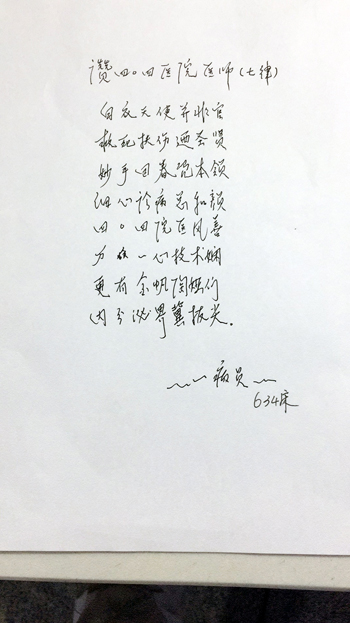 赞四〇四医院医师(七律)
白衣天使并非官
救死扶伤迎圣贤
妙手回春凭本领
细心诊病总和颜
四〇四院医风善
万众一心技术娴
更有余帆陶姐们
内分泌界冀拔尖。
病员
634床